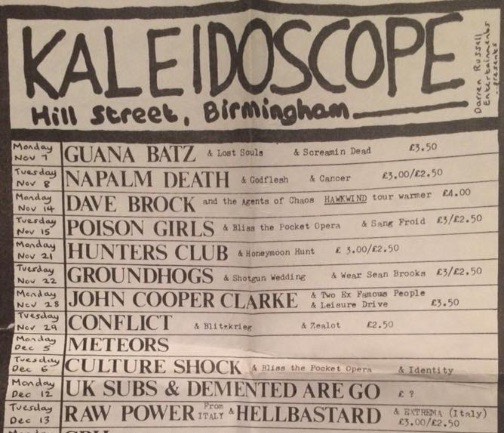 KALEIDOSCOPE
Hill Street, Birmingham
Darren Russell
Entertainments
presents
Monday
Nov 7 GUANA BATZ & Lost Souls & Screamin Dead £3.50
Tuesday
Nov 8 NAPALM DEATH & Godflesh & Cancer £3.00/£2.50
Monday
Nov 14 DAVE BROCK and the Agents of Chaos HAWKWIND tour warmer £4.00
Tuesday
Nov 15 POISON GIRLS & Bliss the Pocket Opera & Sang Froid £3/£2.50
Monday
Nov 21 HUNTERS CLUB & Honeymoon Hunt £ 3.00/£2.50
Tuesday
Nov 22 GROUNDHOGS & Shotgun Wedding & Wear Sean Brooks £3/£2.50
Monday
Nov 28 JOHN COOPER CLARKE & Two Ex Famous People
& Leisure Drive £3.50
Tuesday
Nov 29 CONFLICT & Blitzkrieg & Zealot £2.50
Monday
Dec 5 METEORS
Tuesday
Dec 6 CULTURE SHOCK & Bliss the Pocket Opera & Identity
Monday
Dec 12 UK SUBS & DEMENTED ARE GO £ ?
Tuesday
Dec 13 RAW POWER From ITALY & HELLBASTARD & EXTREMA (Italy)
£3.00/£2.50